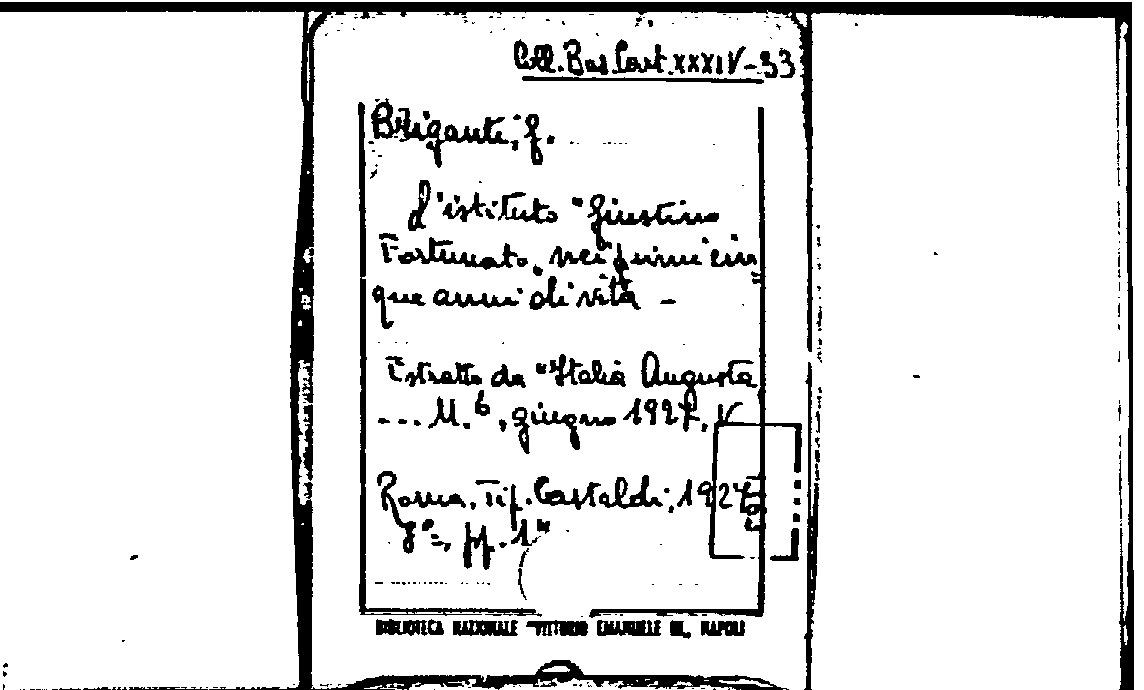 Coll. Bas. Cart. XXXIV-33
Brigante, G.
L'istituto "Giustino
Fortunato" nei primi cin
que anni di vita -
Estratto da "Italia Augusta
... N. 6, giugno 1927, V
Roma, Tip. Castaldi, 1927
8°=, pp.
BIBLIOTECA NAZIONALE "VITTORIO EMANUELE III" NAPOLI